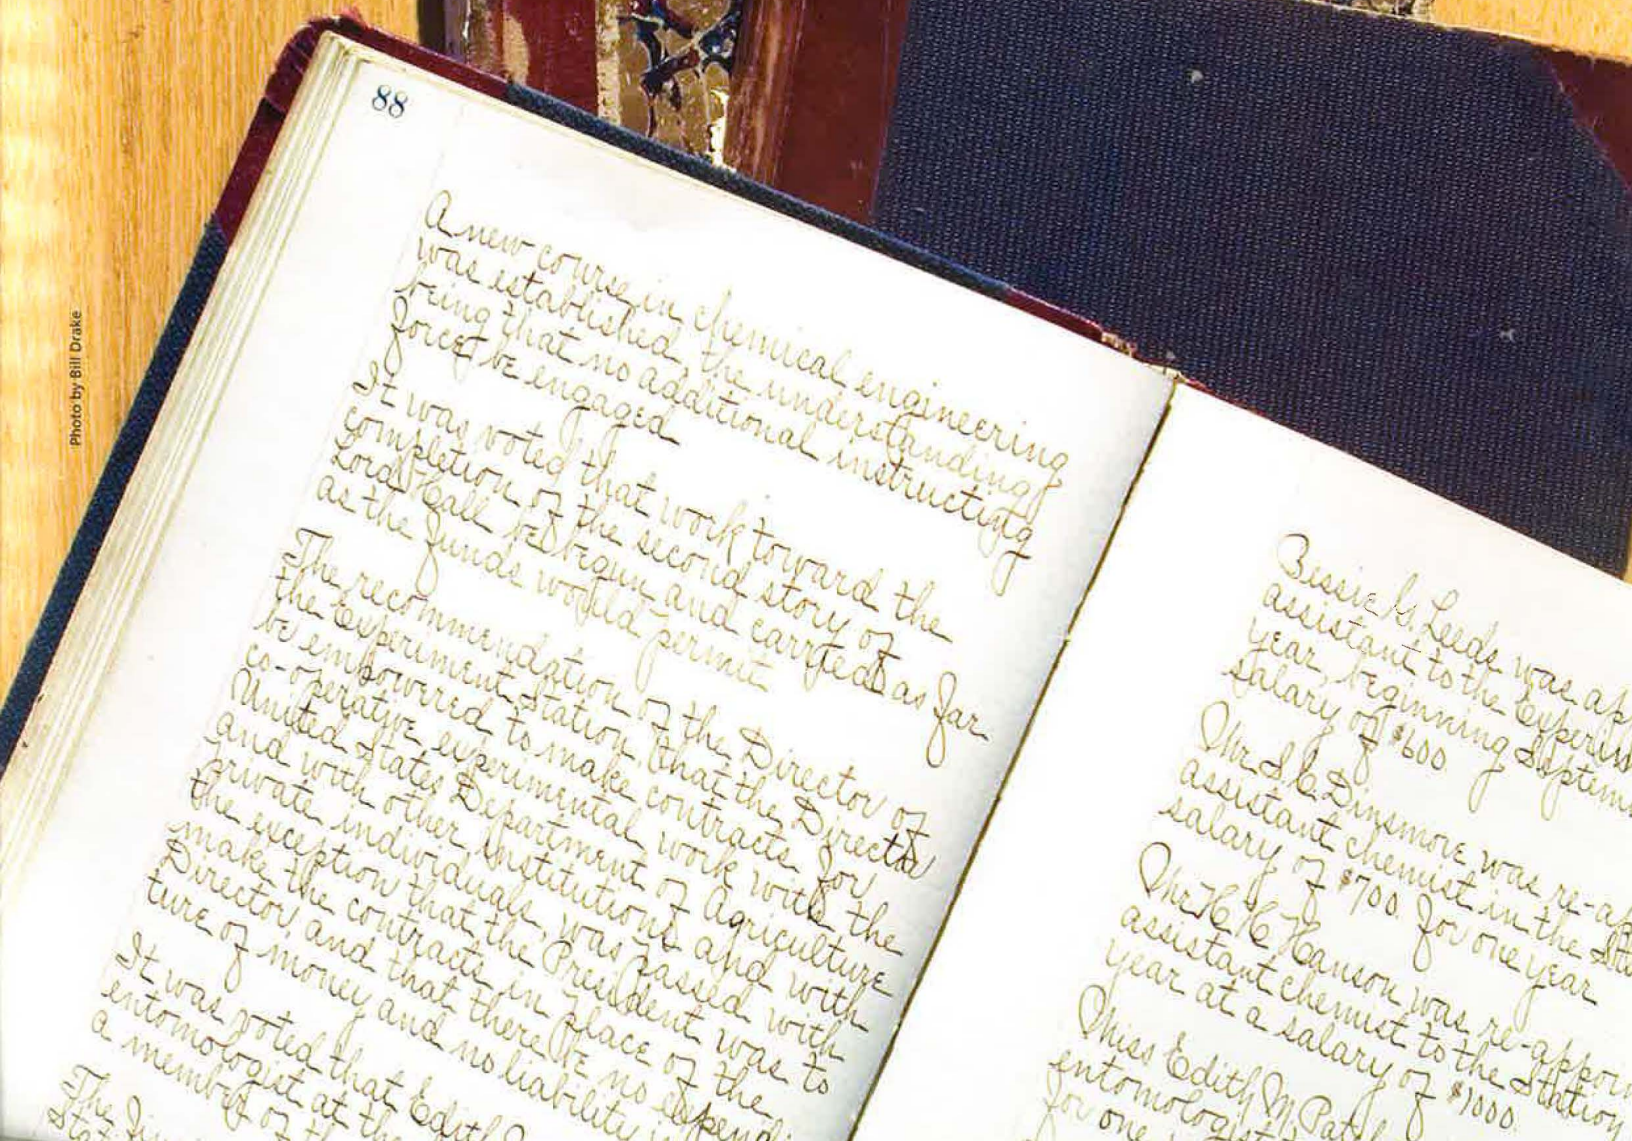 Photo by Bill Drake
88
A new course in chemical engineering
was established, the understanding
being that no additional instructing
force be engaged
It was voted that work toward the
completion of the second story of
Lord Hall be begun and carried as far
as the funds would permit
The recommendation of the Director of
the Experiment Station, that the Director
be empowered to make contracts for
co-operative experimental work with the
United States Department of Agriculture
and with other institutions and with
private individuals, was passed with
the exception that the President was to
make the contracts in place of the
Director, and that there be no expendi-
ture of money and no liability
It was voted that Edith
entomologist at the
a member of
The
Bessie G. Leeds was ap
assistant to the Experim
year, beginning Septem
salary of $600.
Mr. S. C. Dinsmore was re-ap
assistant chemist in the Sta
salary of $700. for one year
Mr. H. H. Hanson was re-appoin
assistant chemist to the Station
year at a salary of $1000.
Miss Edith M. Patch
entomologist
for one